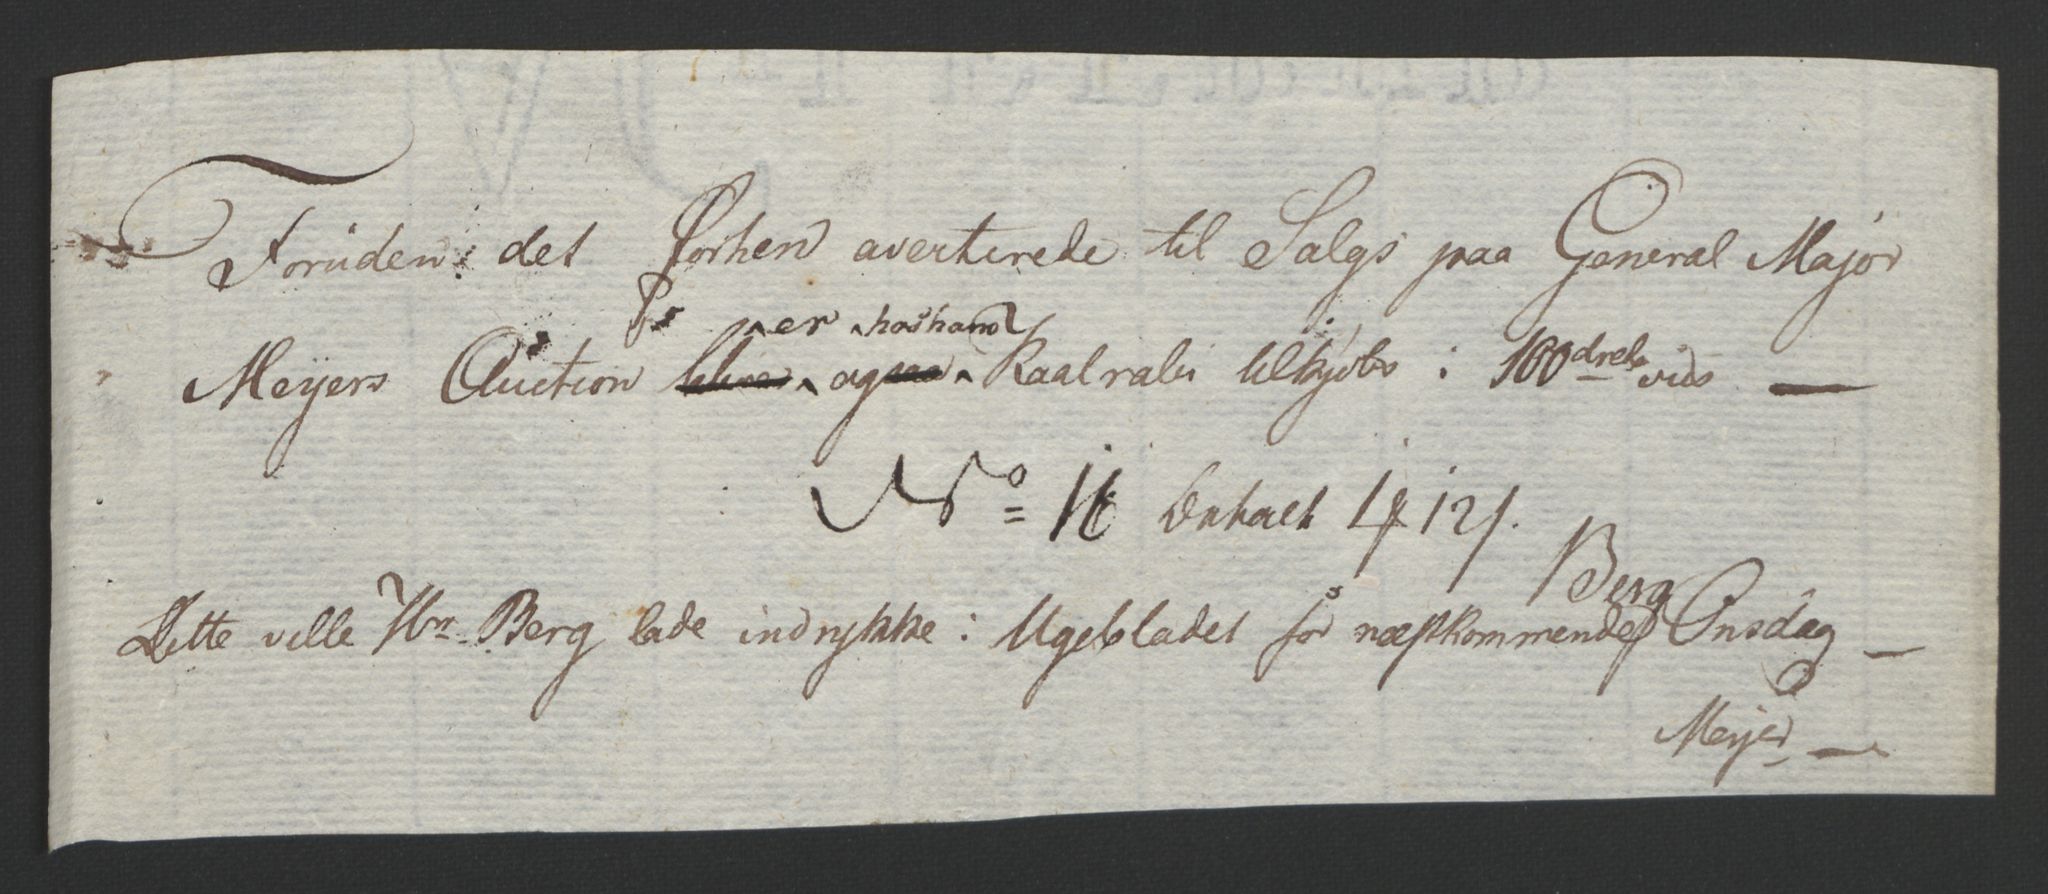 Foruden det Forhen averterede til Salgs paa General Major
er hos ham
Meyers Auction blive og paa Kaalrabi tilkjøbs i 100dreds viis —
No 16 betalt
Berg
Dette ville Hrr Berg lade indrykke i Ugebladet for næstkommende Onsdag —
Meyer —